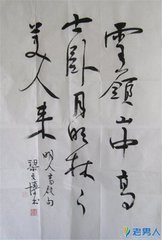 雪滿山中高
士臥月明林下
美人来
明人高啟句
老男人